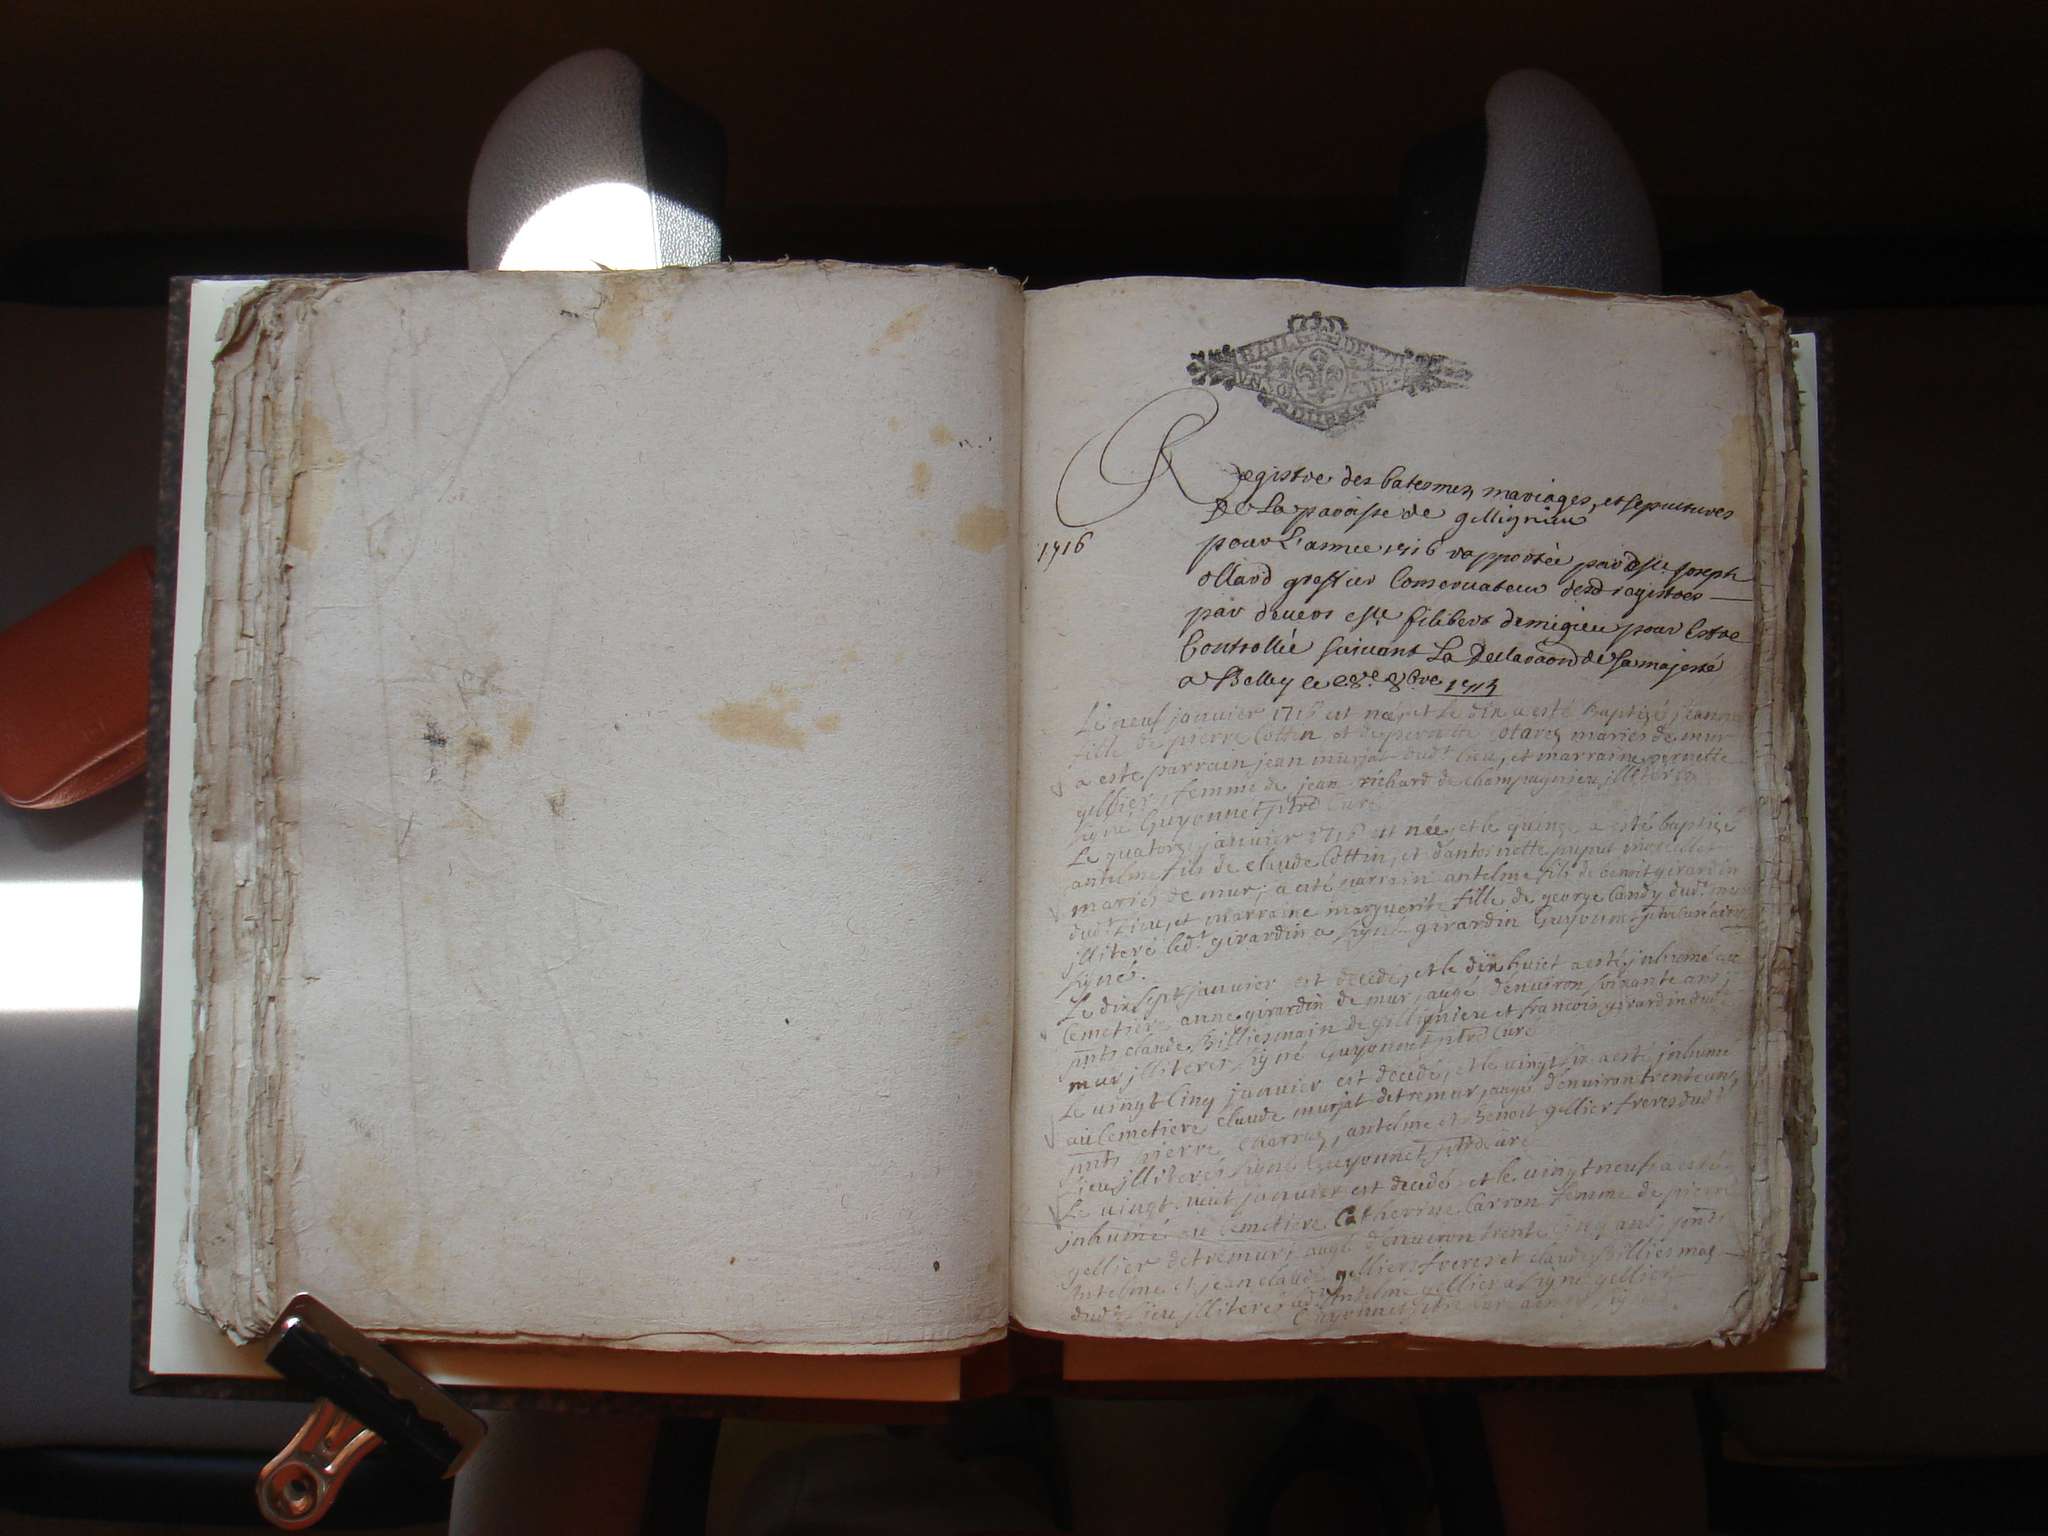 1716
Registre des batesmes, mariages, et sepultures
De La paroisse de gillignieu
pour L'annee 1716 rapportée par Joseph
ollard greffier Conservateur desd registres
par devers filibert demigieu pour Estre
Controllée suivant La de sa majesté
a Belley le 8bre
Le neuf janvier 1716 est née et Le dix a esté Baptizé jeanne
fille de pierre Cottin, et de mariés de mur
a esté parrain jean murjat dudt lieu, et marraine pernette
gellier, femme de jean richard de Champagnieu illiterés
signé Guyonnet ptre Curé
Le quatorze janvier 1716 est née, et le quinze a esté baptizé
antelme fils de claude Cottin, et d'antoinette
mariés de mur; a esté parrain antelme fils de benoit girardin
dudt Lieu, et marraine marguerite fille de george Candy dudt mur
illiteré ledt girardin a signé girardin Guyonnet ptre Curé
signés.
Le dix sept janvier est decedé, et le dix huict a esté inhumé au
Cemetiere anne girardin de mur, augé d'environ soixante ans,
pnts claude Billiesmain de gillignieu et francois girardin dudt
mur illiterés signé Guyonnet ptre Curé
Le vingt Cinq janvier est decedé, et le vingt six a esté inhumé
au Cemetiere claude murjat de tremur, augé d'environ trente ans,
pnts pierre, antelme et Benoit gellier freres dudt
Lieu illiterés signé Guyonnet ptre Curé
Le vingt huit janvier est decedé et le vingt neuf a esté
inhumé au Cemetiere Catherine Carron femme de pierre
gellier de tremur, augé d'environ trente Cinq ans, pnts
Antelme et jean claude gelliers freres et claude Billiesmas
dudt Lieu illiterés Antelme gellier a signé gellier
Guyonnet ptre